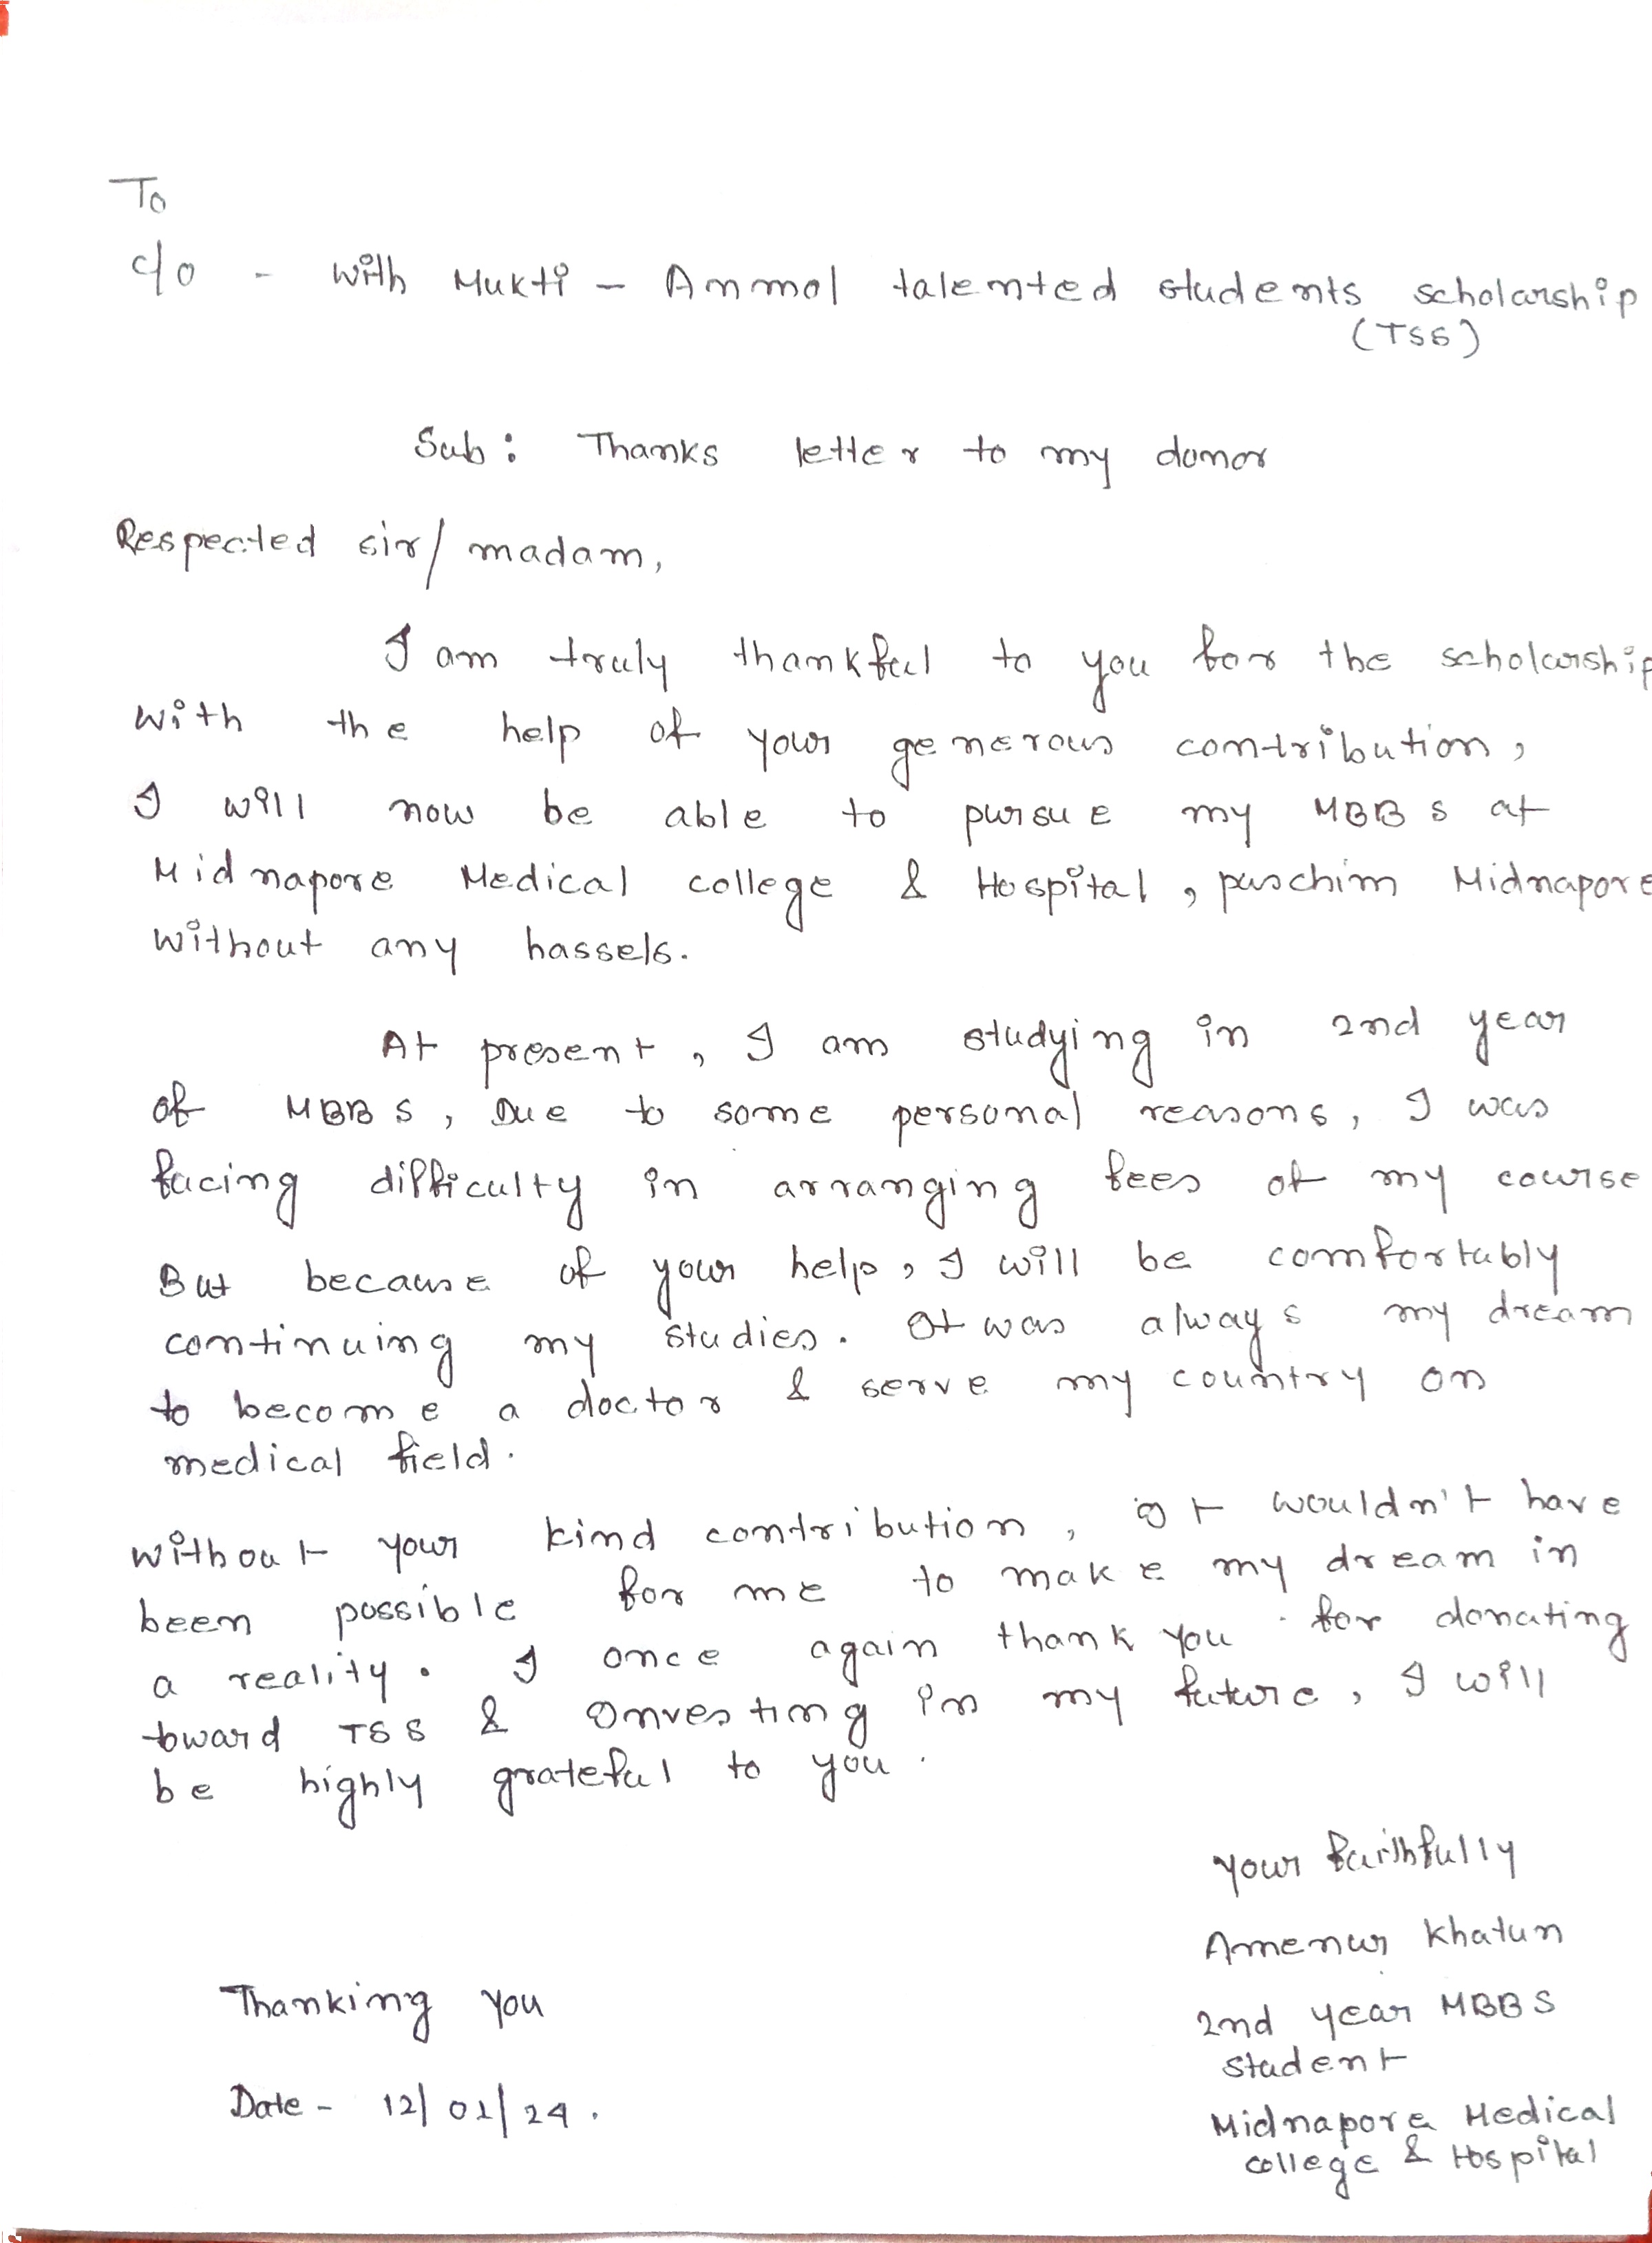 To
c/o - with Mukti - Anmol talented students scholarship
(TSS)
Sub: Thanks letter to my donor
Respected sir/madam,
I am truly thankful to you for the scholarship
with the help of your generous contribution,
I will now be able to pursue my MBBS at
Midnapore Medical college & Hospital, paschim Midnapore
without any hassels.
At present, I am studying in 2nd year
of MBBS, Due to some personal reasons, I was
facing difficulty in arranging fees of my course
But because of your help, I will be comfortably
continuing my studies. It was always my dream
to become a doctor & serve my country on
medical field.
without your kind contribution, It wouldn't have
been possible for me to make my dream in
a reality. I once again thank you for donating
toward TSS & Investing in my future, I will
be highly grateful to you.
your faithfully
Amenur Khatun
Thanking you
2nd year MBBS
student
Date - 12/01/24.
Midnapore Medical
college & Hospital